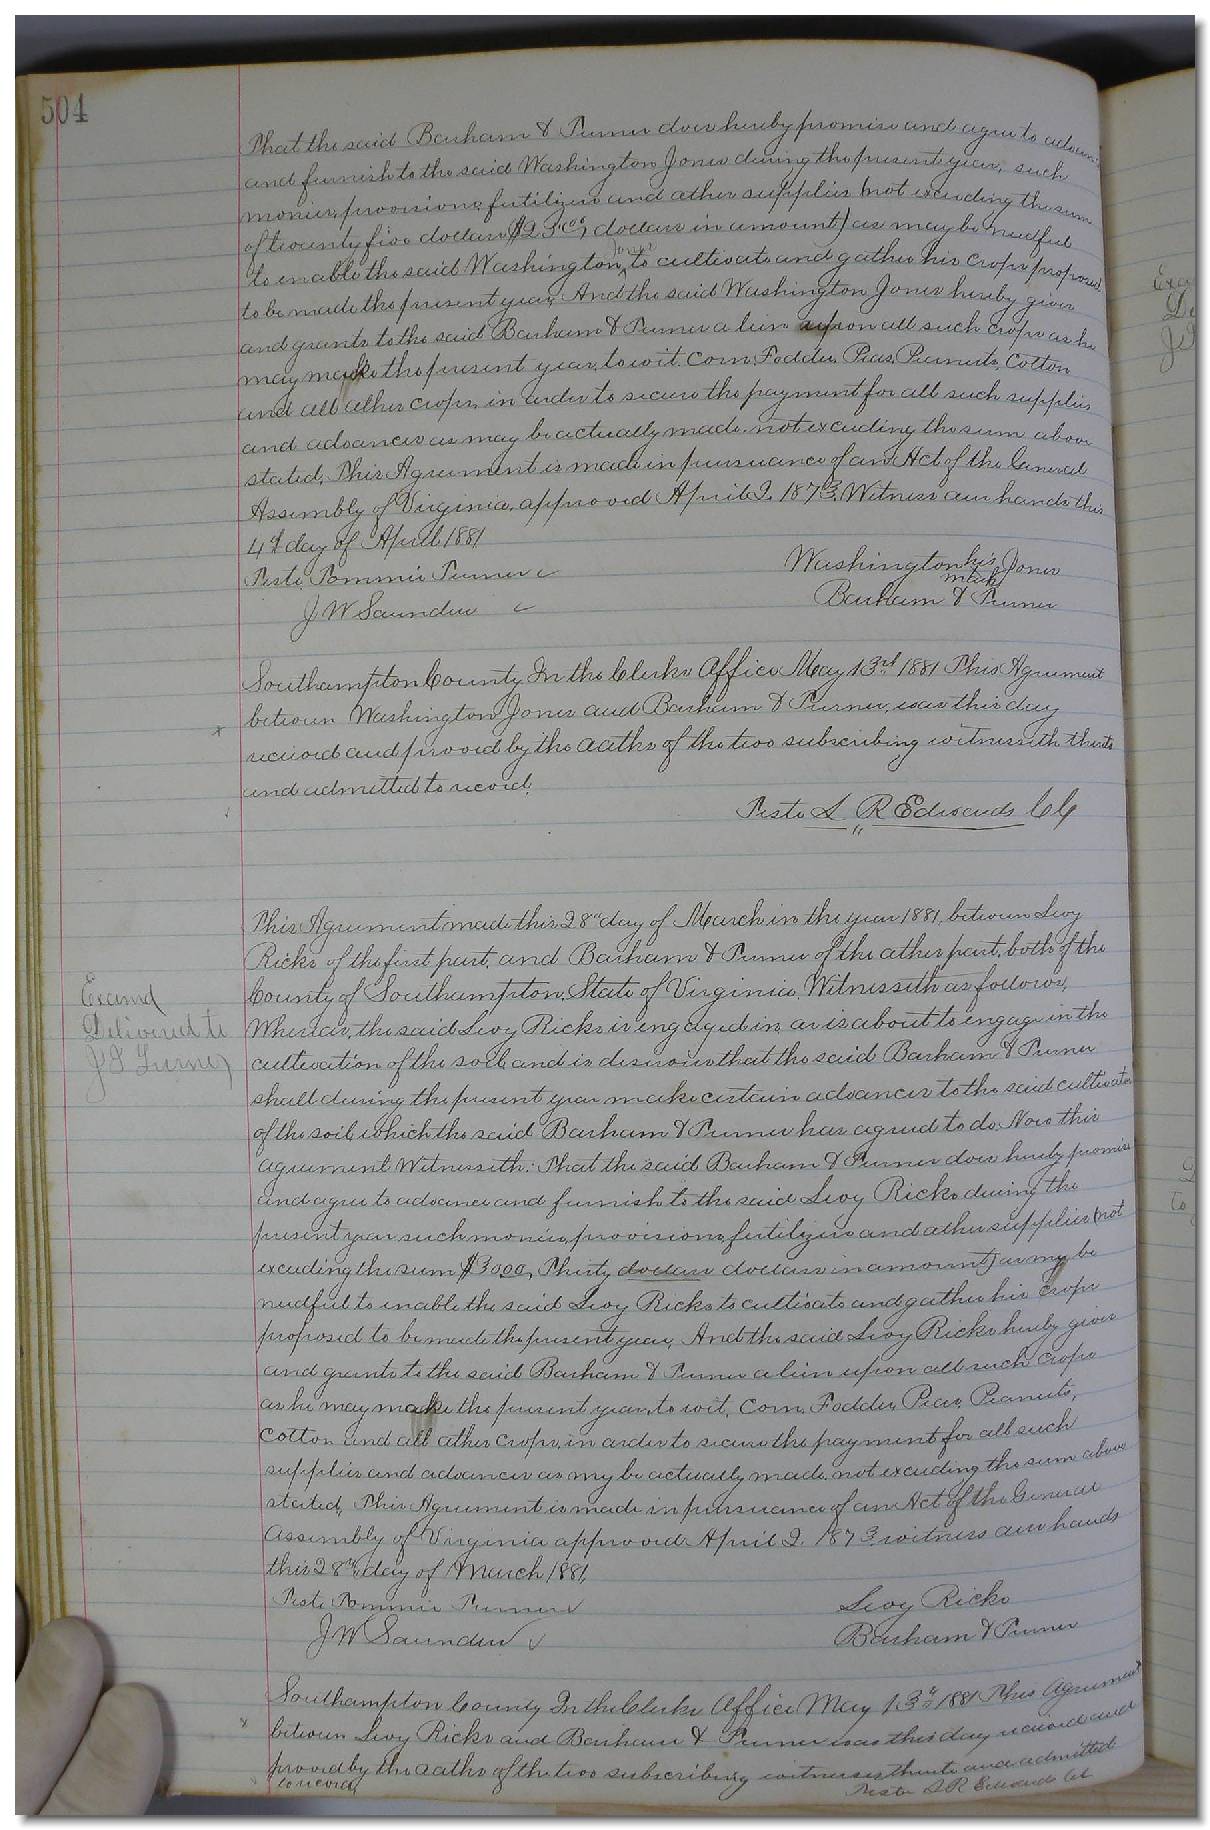 504
That the said Barham & Turner does hereby promise and agree to advance
and furnish to the said Washington Jones during the present year, such
monies, provisions, fertilizers and other supplies (not exceeding the sum
of twenty five dollars $25.00, dollars in amount) as may be needful
to enable the said Washington Jones to cultivate and gather his crops proposed
to be made the present year. And the said Washington Jones hereby gives
and grants to the said Barham & Turner a lien upon all such crops as he
may make the present year, to wit. Corn, Fodder, Peas, Peanuts, Cotton
and all other crops, in order to secure the payment for all such supplies
and advances as may be actually made, not exceeding the sum above
stated, This Agreement is made in pursuance of an Act of the General
Assembly of Virginia, approved April 2, 1873. Witness our hands this
4th day of April 1881
Teste Tommie Turner
Washington his mark Jones
J W Saunders
Barham & Turner
Southampton County In the Clerks Office May 13rd 1881 This Agreement
between Washington Jones and Barham & Turner, was this day
received and proved by the oaths of the two subscribing witnesseth thereto
and admitted to record.
Teste L R Edwards CC
This Agreement made this 28th day of March in the year 1881, between Levy
Ricks of the first part, and Barham & Turner of the other part, both of the
County of Southampton, State of Virginia, Witnesseth as follows,
Whereas, the said Levy Ricks is engaged in, or is about to engage in the
Examd
Delivered to
J F Turner
cultivation of the soil, and is desirous that the said Barham & Turner
shall during the present year make certain advances to the said cultivator
of the soil, which the said Barham & Turner has agreed to do. Now this
agreement Witnesseth: That the said Barham & Turner does hereby promise
and agree to advance and furnish to the said Levy Ricks during the
present year such monies, provisions, fertilizers and other supplies (not
exceeding the sum $30.00, Thirty dollars dollars in amount) as my be
needful to enable the said Levy Ricks to cultivate and gather his crops
proposed to be made the present year, And the said Levy Ricks hereby gives
and grants to the said Barham & Turner a lien upon all such crops
as he may make the present year, to wit, Corn, Fodder, Peas, Peanuts,
Cotton and all other crops, in order to secure the payment for all such
supplies and advances as my be actually made, not exceeding the sum above
stated, This Agreement is made in pursuance of an Act of the General
Assembly of Virginia approved April 2, 1873. witness our hands
this 28th day of March 1881,
Teste Tommie Turner
Levy Ricks
J W Saunders
Barham & Turner
Southampton County In the Clerks Office May 13th 1881 This Agreement
between Levy Ricks and Barham & Turner was this day received and
proved by the oaths of the two subscribing witnesses thereto and admitted
to record
Teste L R Edwards CC